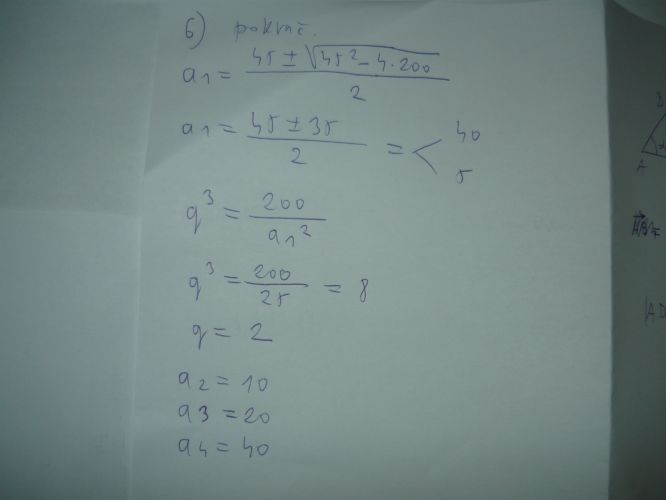 6) pokrač.
a1 = (45 ± √(45² - 4·200)) / 2
a1 = (45 ± 35) / 2 = < 40
5
q³ = 200 / a1²
q³ = 200 / 25 = 8
q = 2
a2 = 10
a3 = 20
a4 = 40
A
|AD